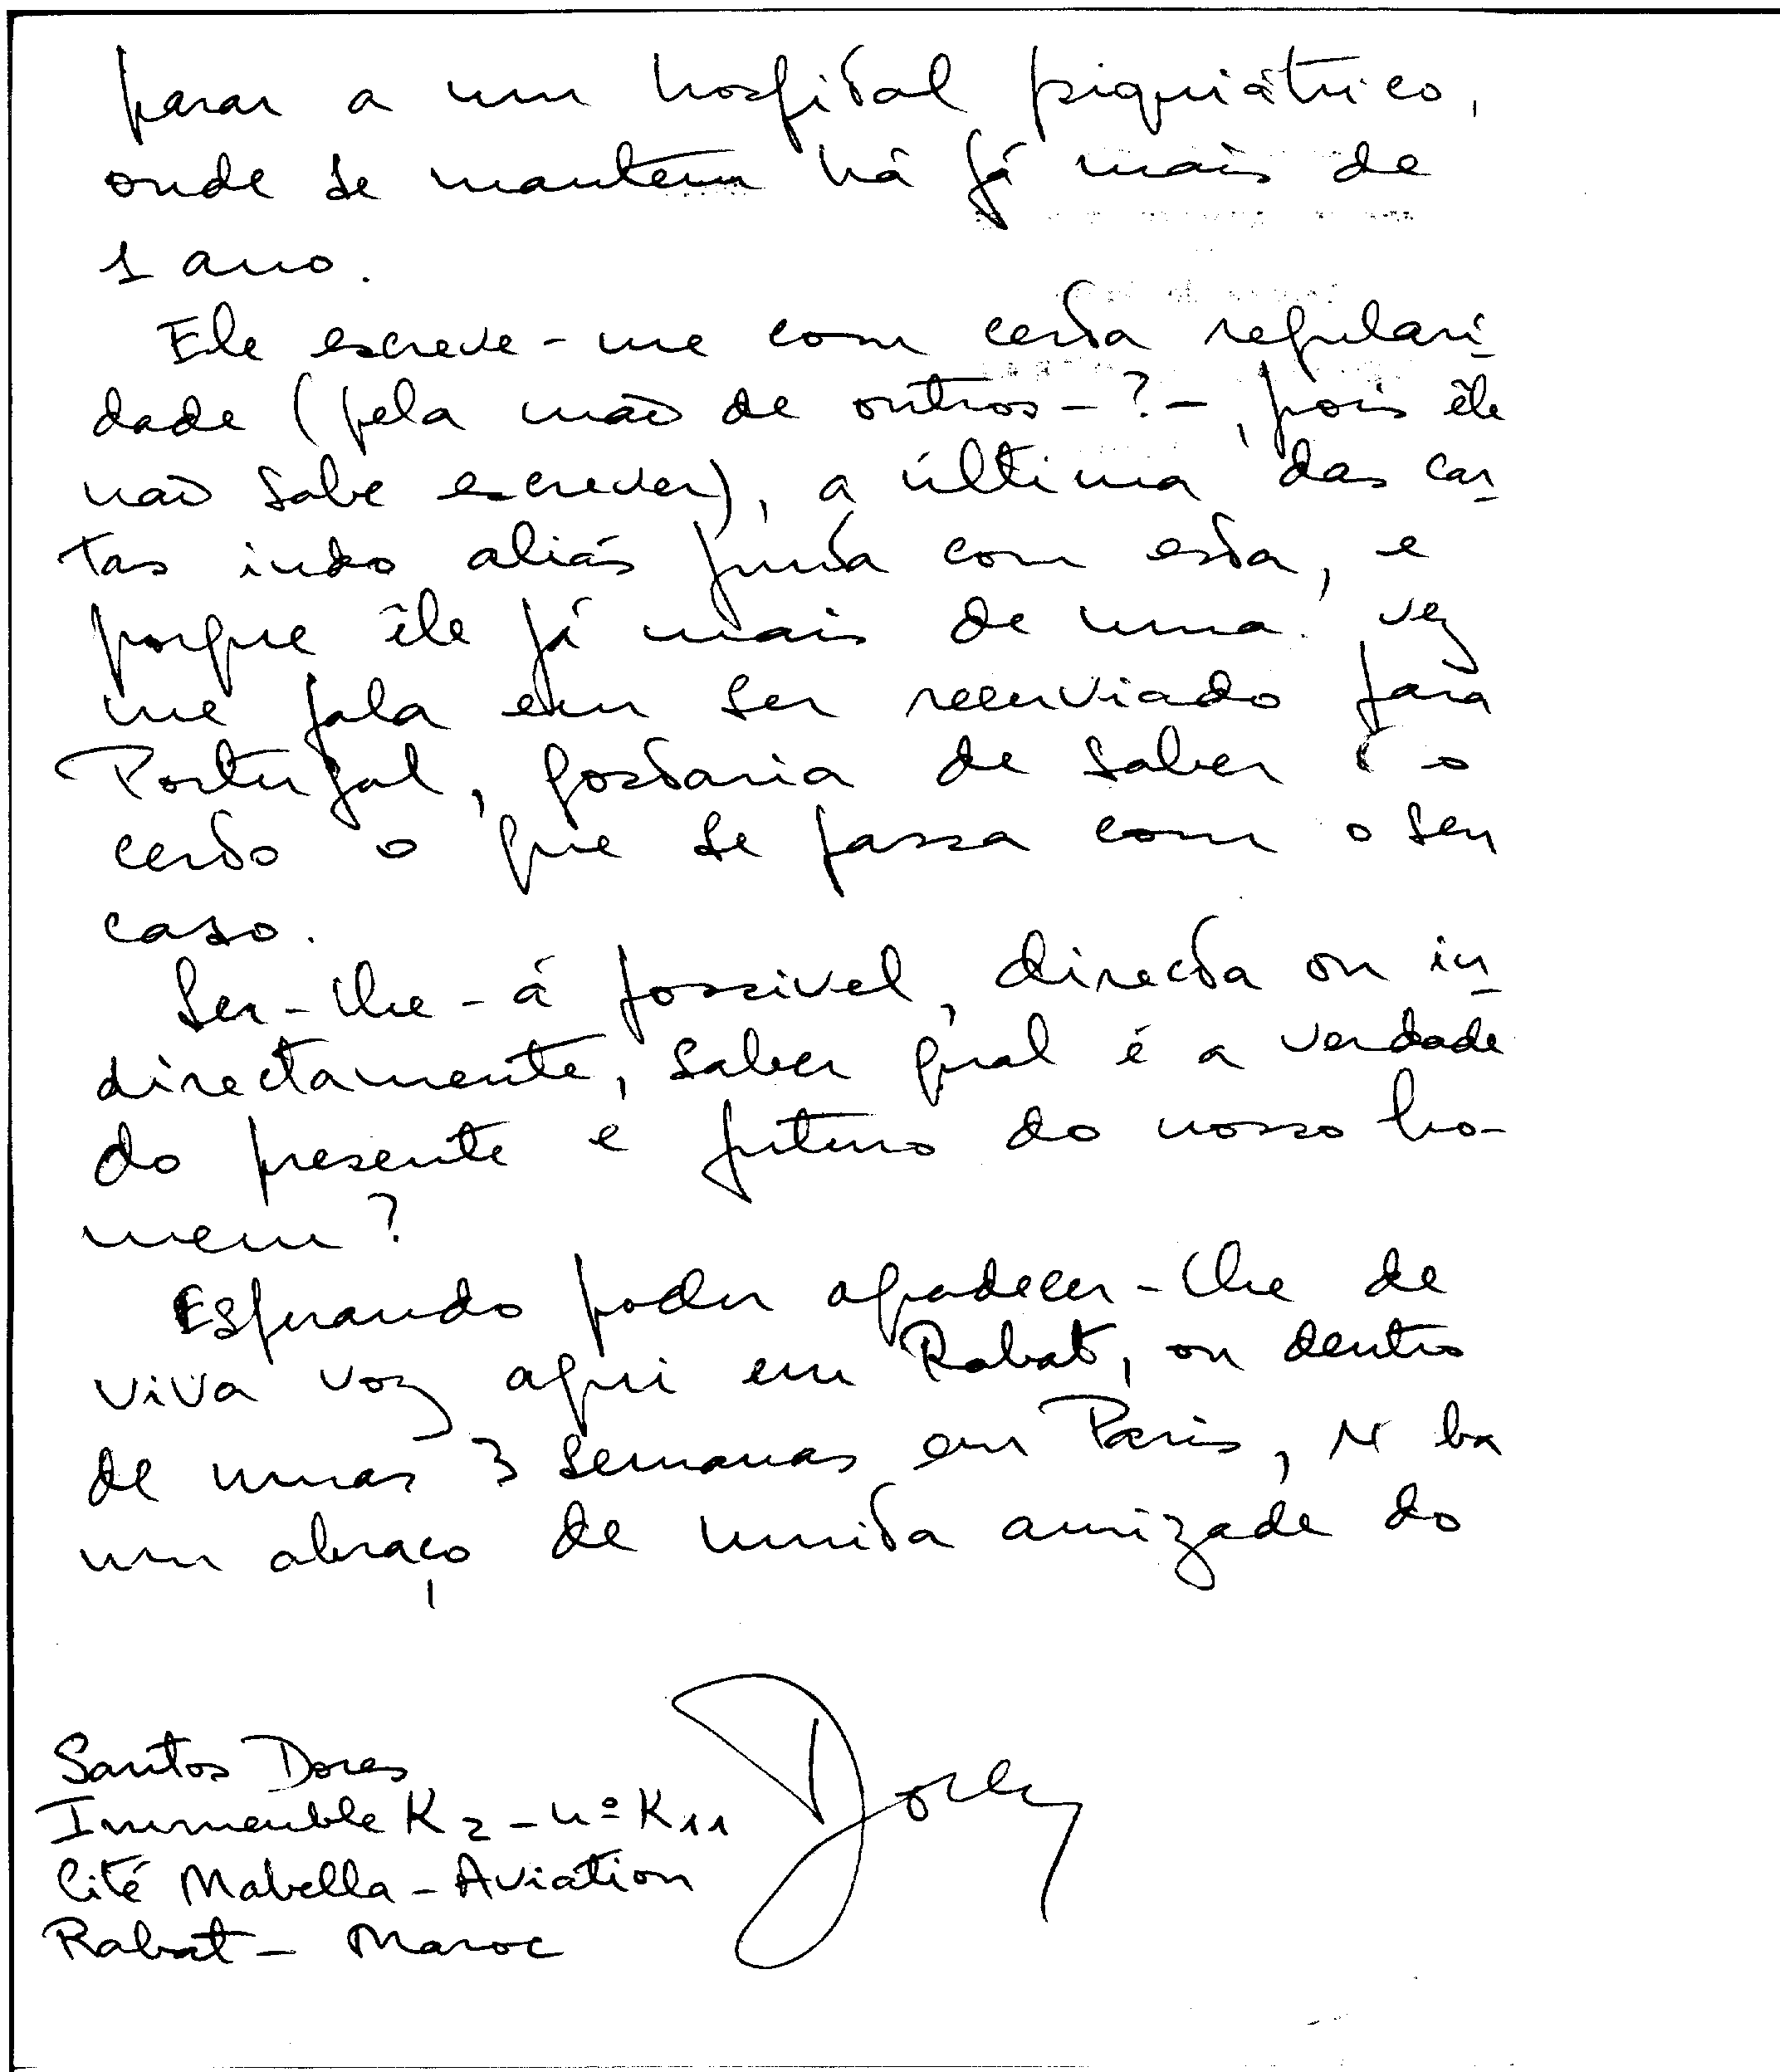 parar a um hospital psiquiátrico,
onde se mantem há já mais de
1 ano.
Ele escreve-me com certa regulari-
dade (pela mão de outros-?-, pois êle
não sabe escrever), a última das car-
tas indo aliás junta com esta, e
porque êle já mais de uma vez
me fala em ser reenviado para
Portugal, gostaria de saber o
certo o que se passa com o seu
caso.
Ser-lhe-á possivel, directa ou in-
directamente, saber qual é a verdade
do presente e futuro do nosso ho-
mem?
Esperando poder agradecer-lhe de
viva voz aqui em Rabat, ou dentro
de umas 3 semanas em Paris,
um abraço de muita amizade do
Santos Dores
Immeuble K2 - nº K11
Cité Mabella - Aviation
Rabat - Maroc
Dores